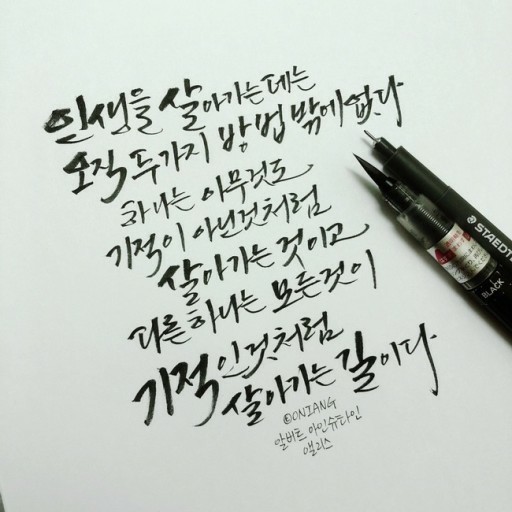 인생을 살아가는데는
오직 두가지 방법 밖에 없다
하나는 아무것도
기적이 아닌것처럼
살아가는 것이고
다른 하나는 모든것이
기적인것처럼
살아가는 길이다
©ONIANG
알버트 아인슈타인
앨리스
STAEDTL
BLACK